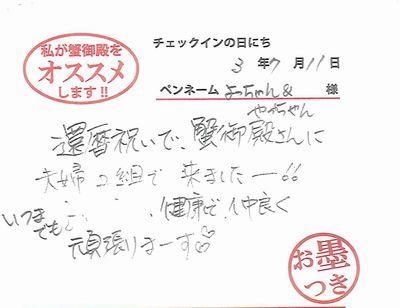 私が蟹御殿を
オススメ
します!!
チェックインの日にち
3 年 7 月 11 日
ペンネーム よっちゃん& 様
やっちゃん
還暦祝いで、蟹御殿さんに
夫婦2組で 来ましたー!!
いつまでも
健康で、仲良く
頑張りまーす
お墨つき